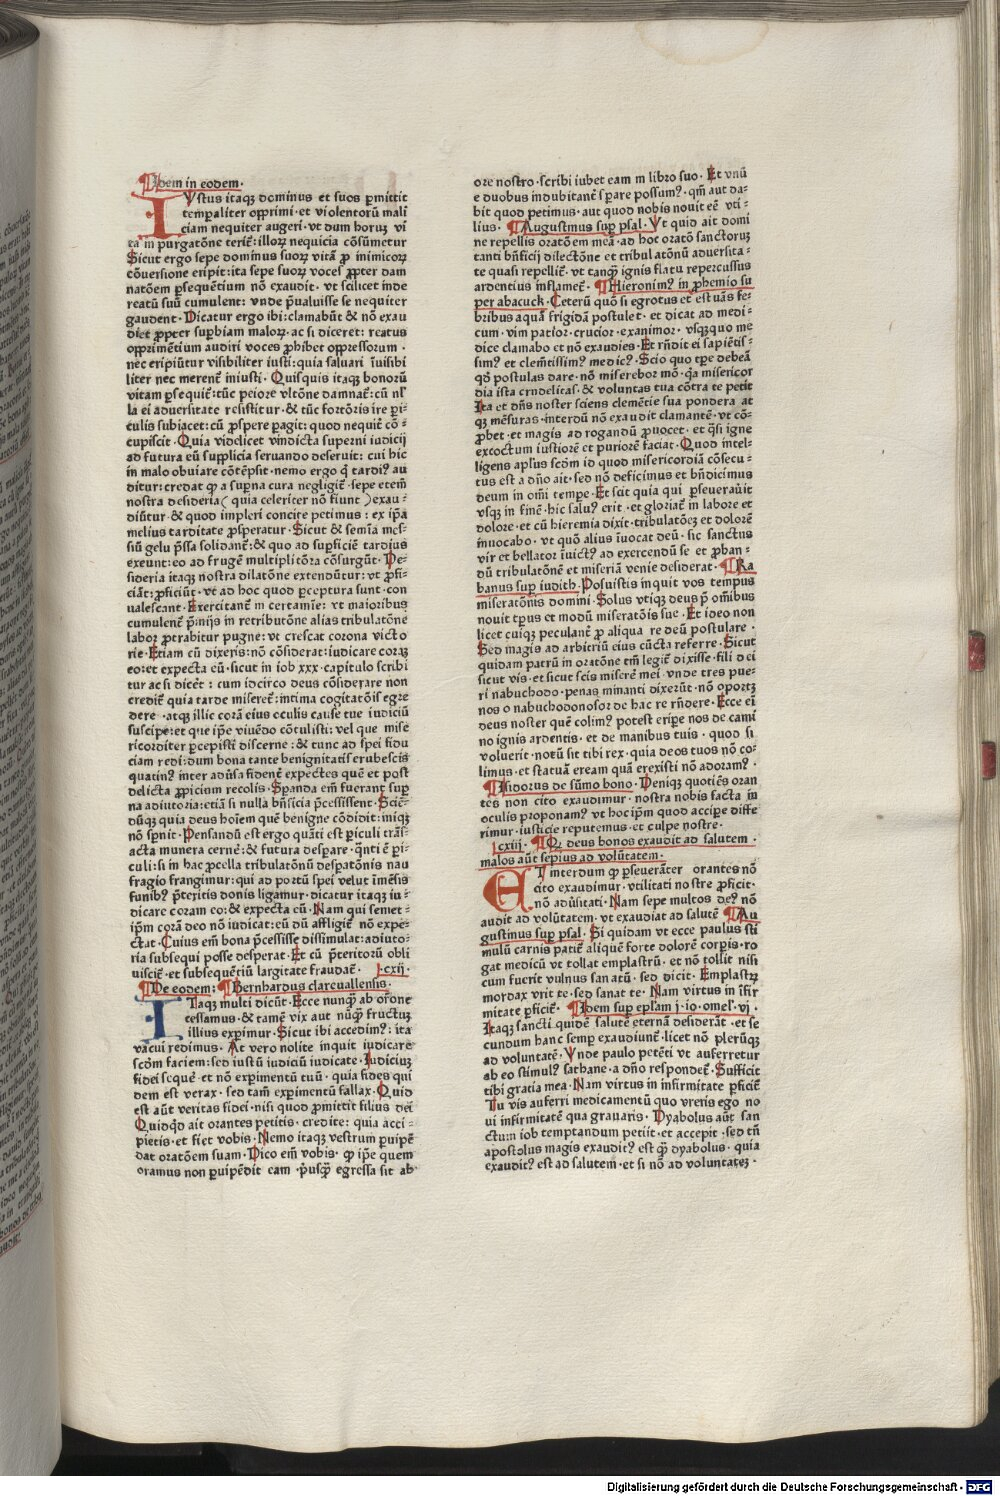 Idem in eodem·
IVstus itaqꝫ dominus et suos ꝑmittit
temꝑaliter opprimi·et violentorū mali
ciam nequiter augeri·vt dum horuꝫ vi
ta in purgatōne teriť:illoꝝ nequicia cōsumetur
Sicut ergo sepe dominus suoꝝ vitā ꝓ inimicoꝝ
cōuersione eripit:ita sepe suoꝝ voces ꝓpter dam
natōem ꝑsequētium nō exaudit·vt scilicet inde
reatū suū cumulent: vnde p̄ualuisse se nequiter
gaudent·Dicatur ergo ibi:clamabūt & nō exau
diet ꝓpter suꝑbiam maloꝝ·ac si diceret: reatus
opprimētium audiri voces ꝓhibet oppressorum·
nec eripiūtur visibiliter iusti:quia saluari īuisibi
liter nec merent̄ iniusti·Quisquis itaqꝫ bonorū
vitam ꝑsequit̄:tūc peiore vltōne damnat̄:cū nl̄
la ei aduersitate resistitur·& tūc fortōris ire ꝑi-
culis subiacet:cū ꝓspere ꝑagit:quod nequit̄ cō-
cupiscit·Quia videlicet vindicta superni iudicij
ad futura eū supplicia seruando deseruit: cui hic
in malo obuiare cōtēpsit·nemo ergo q̄ tardi⁹ au
ditur:credat qꝫ a suꝑna cura negligit̄·sepe etem̄
nostra desideria(quia celeriter nō fiunt)exau-
diūtur·& quod impleri concite petimus: ex ip̄a
melius tarditate ꝓsperatur·Sicut & semīa mes-
siū gelu p̄ssa solidant̄:& quo ad suꝑficiē tardius
exeunt:eo ad frugē multiplitōra cōsurgūt·De-
sideria itaqꝫ nostra dilatōne extendūtur:vt ꝓfi-
ciāt:ꝓficiūt·vt ad hoc quod ꝑceptura sunt·con
ualescant·Exercitant̄ in certamīe: vt maioribus
cumulent̄ p̄mijs in retributōne alias tribulatōne
labor ꝓtrahitur pugne:vt crescat corona victo
rie·Etiam cū dixeris:nō cōsiderat:iudicare coraꝫ
eo:et expecta eū·sicut in iob xxx·capitulo scribi
tur ac si dicet̄: cum idcirco deus cōsiderare non
credit̄ quia tarde miseret̄:intima cogitatōis egre
dere·atqꝫ illic corā eius oculis cause tue iudiciū
suscipe:et que ip̄e viuēdo cōtulisti: vel que mise
ricorditer ꝑcepisti discerne:& tunc ad spei fidu
ciam redi:dum bona tante benignitatis erubescis
quatin⁹ inter adūsa fident̄ expectes quē et post
delicta ꝓpicium recolis·Spanda em̄ fuerant suꝑ
na adiutoria:etiā si nulla bn̄ficia p̄cessissent·Sciē-
dūqꝫ quia deus hoīem quē benigne cōdidit:iniqꝫ
nō sꝑnit·Pensandū est ergo quāti est ꝑiculi trās-
acta munera cernē:& futura desꝑare·q̄nti ē ꝑi-
culi:si in hac ꝓcella tribulatōnū desꝑatōnis nau
fragio frangimur:qui ad portū spei velut īmēsis
funib⁹ p̄teritis donis ligamur·dicatur itaqꝫ iu-
dicare coram eo:& expecta eū·Nam qui semet-
ip̄m corā deo nō iudicat:eū dū affligit̄ nō expe-
ctat·Cuius em̄ bona p̄cessisse dissimulat:adiuto-
ria subsequi posse desperat·Et cū p̄teritorū obli
uiscit̄·et subsequētiū largitate fraudat̄· l·cxij·
De eodem: Bernhardus clareuallensis·
ITaqꝫ multi dicūt·Ecce nunqꝫ ab or̄one
cessamus·& tamē vix aut nūqꝫ fructuꝫ
illius expimur·Sicut ibi accedim⁹: ita
vacui redimus·At vero nolite inquit iudicare
scōm faciem:sed iustū iudiciū iudicate·Iudiciuꝫ
fidei seque·et nō experimentū tuū·quia fides qui
dem est verax·sed tam̄ experimentū fallax·Quid
est aūt veritas fidei·nisi quod ꝓmittit filius dei
Quidqd ait orantes petitis·credite: quia acci-
pietis·et fiet vobis·Nemo itaqꝫ vestrum ꝑuipē
dat oratōem suam·Dico em̄ vobis·qꝫ ip̄e quem
oramus non ꝑuipēdit eam·p̄usqꝫ egressa sit ab
ore nostro·scribi iubet eam in libro suo·Et vnū
e duobus indubitant̄ sꝑare possum⁹·qm̄ aut da-
bit quod petimus·aut quod nobis nouit eē vti-
lius· Augustinus suꝑ psal·Vt quid ait domi
ne repellis oratōem meā·ad hoc oratō sanctoruꝫ
tanti bn̄ficij dilectōne et tribulatōnū aduersita-
te quasi repellit̄·vt tanqꝫ ignis flatu repercussus
ardentius inflamet̄· Hieronim⁹ in ꝓhemio su
per abacuck·Ceterū quō si egrotus et estuās fe-
bribus aquā frigidā postulet·et dicat ad medi-
cum·vim patior·crucior·exanimor·vsqꝫquo me
dice clamabo et nō exaudies·Et rn̄dit ei sapiētis-
sim⁹ et clem̄tissim⁹ medic⁹·Scio quo tꝑe debeā
qd postulas dare·nō misererebor mō·qꝫ misericor
dia ista crudelitas·& voluntas tua cōtra te petit
Ita et dn̄s noster sciens clemētie sua pondera at
qꝫ mēsuras·interdū nō exaudit clamantē·vt cō-
ꝓbet·et magis ad rogandū ꝓuocet·et q̄si igne
excoctum iustiorē et puriorē faciat·Quod intel-
ligens apl̄us scōm id quod misericordiā cōsecu-
tus est a dn̄o ait·sed nō deficimus et bn̄dicimus
deum in om̄i tempe·Et scit quia qui ꝑseuerauit
vsqꝫ in finē·hic salu⁹ erit·et gloriat̄ in labore et
dolore·et cū hieremia dixit·tribulatōeꝫ et dolorē
inuocabo·vt quō alius īuocat deū·sic sanctus
vir et bellator īuict⁹ ad exercendū se et ꝓban-
dū tribulatōnē et miseriā venie desiderat· Ra
banus suꝑ iudith·Posuistis inquit vos tempus
miseratōnis domini·Solus vtiqꝫ deus p̄ om̄ibus
nouit tꝑus et modū miseratōis sue·Et ideo non
licet cuiqꝫ peculant̄ ꝓ aliqua re deū postulare·
Sed magis ad arbitriū eius cūcta referre·Sicut
quidam patrū in oratōne tm̄ legit̄ dixisse·fili dei
sicut vis·et sicut scis miserē mei·vnde tres pue-
ri nabuchodo·penas minanti dixerūt·nō oportꝫ
nos o nabuchodonosor de hac re rn̄dere·Ecce ei
deus noster quē colim⁹ potest eriꝑe nos de cami
no ignis ardentis·et de manibus tuis·quod si
voluerit·notū sit tibi rex·quia deos tuos nō co-
limus·et statuā eream quā erexisti nō adoram⁹·
Isidorus de sūmo bono·Deniqꝫ quotiēs oran
tes non cito exaudimur·nostra nobis facta in
oculis ꝓponam⁹·vt hoc ip̄m quod acciꝑe diffe
rimur·iusticie reputemus·et culpe nostre·
l·cxiij· Qꝫ deus bonos exaudit ad salutem·
malos aūt sepius ad volūtatem·
ET interdum qꝫ ꝑseuerāter orantes nō
cito exaudimur·vtilitati nostre ꝓficit·
nō adūsitati·Nam sepe multos de⁹ nō
audit ad volūtatem·vt exaudiat ad salutē Au
gustinus suꝑ psal·Si quidam vt ecce paulus sti
mulū carnis patiēt aliquē forte dolorē corꝑis·ro
gat medicū vt tollat emplastrū·et nō tollit nisi
cum fuerit vulnus sanatū·sed dicit·Emplastꝝ
mordax vrit te·sed sanat te·Nam virtus in īfir
mitate ꝑficit̄· Idem suꝑ epl̄am j·io·omel·vj·
Itaqꝫ sancti quidē salutē eternā desiderāt·et se
cundum hanc semꝑ exaudiunt̄·licet nō pleruqꝫ
ad voluntatē·Vnde paulo petēti vt auferretur
ab eo stimul⁹ sathane·a dn̄o respondet̄·Sufficit
tibi gratia mea·Nam virtus in infirmitate ꝑficit̄
Tu vis auferri medicamentū quo vreris ego no
ui infirmitatē qua grauaris·Dyabolus aūt san
ctum iob temptandum petiit·et accepit·sed tn̄
apostolus magis exaudit⁹ est qꝫ dyabolus·quia
exaudit⁹ est ad salutem·et si nō ad voluntateꝫ·
Digitalisierung gefördert durch die Deutsche Forschungsgemeinschaft - DFG